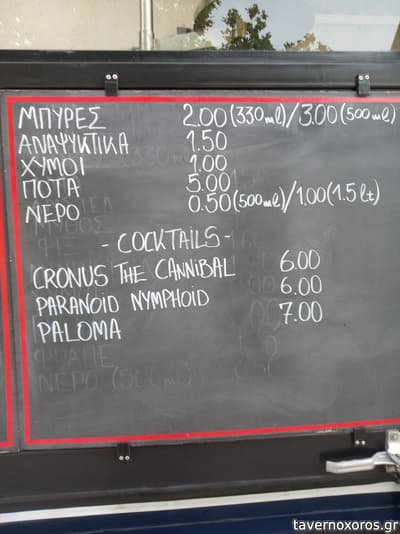 ΜΠΥΡΕΣ 2.00 (330ml)/3.00 (500ml)
ΑΝΑΨΥΚΤΙΚΑ 1.50
ΧΥΜΟΙ 1.00
ΠΟΤΑ 5.00
ΝΕΡΟ 0.50 (500ml)/1.00 (1.5 lt)
- COCKTAILS -
CRONUS THE CANNIBAL 6.00
PARANOID NYMPHOID 6.00
PALOMA 7.00
tavernoxoros.gr